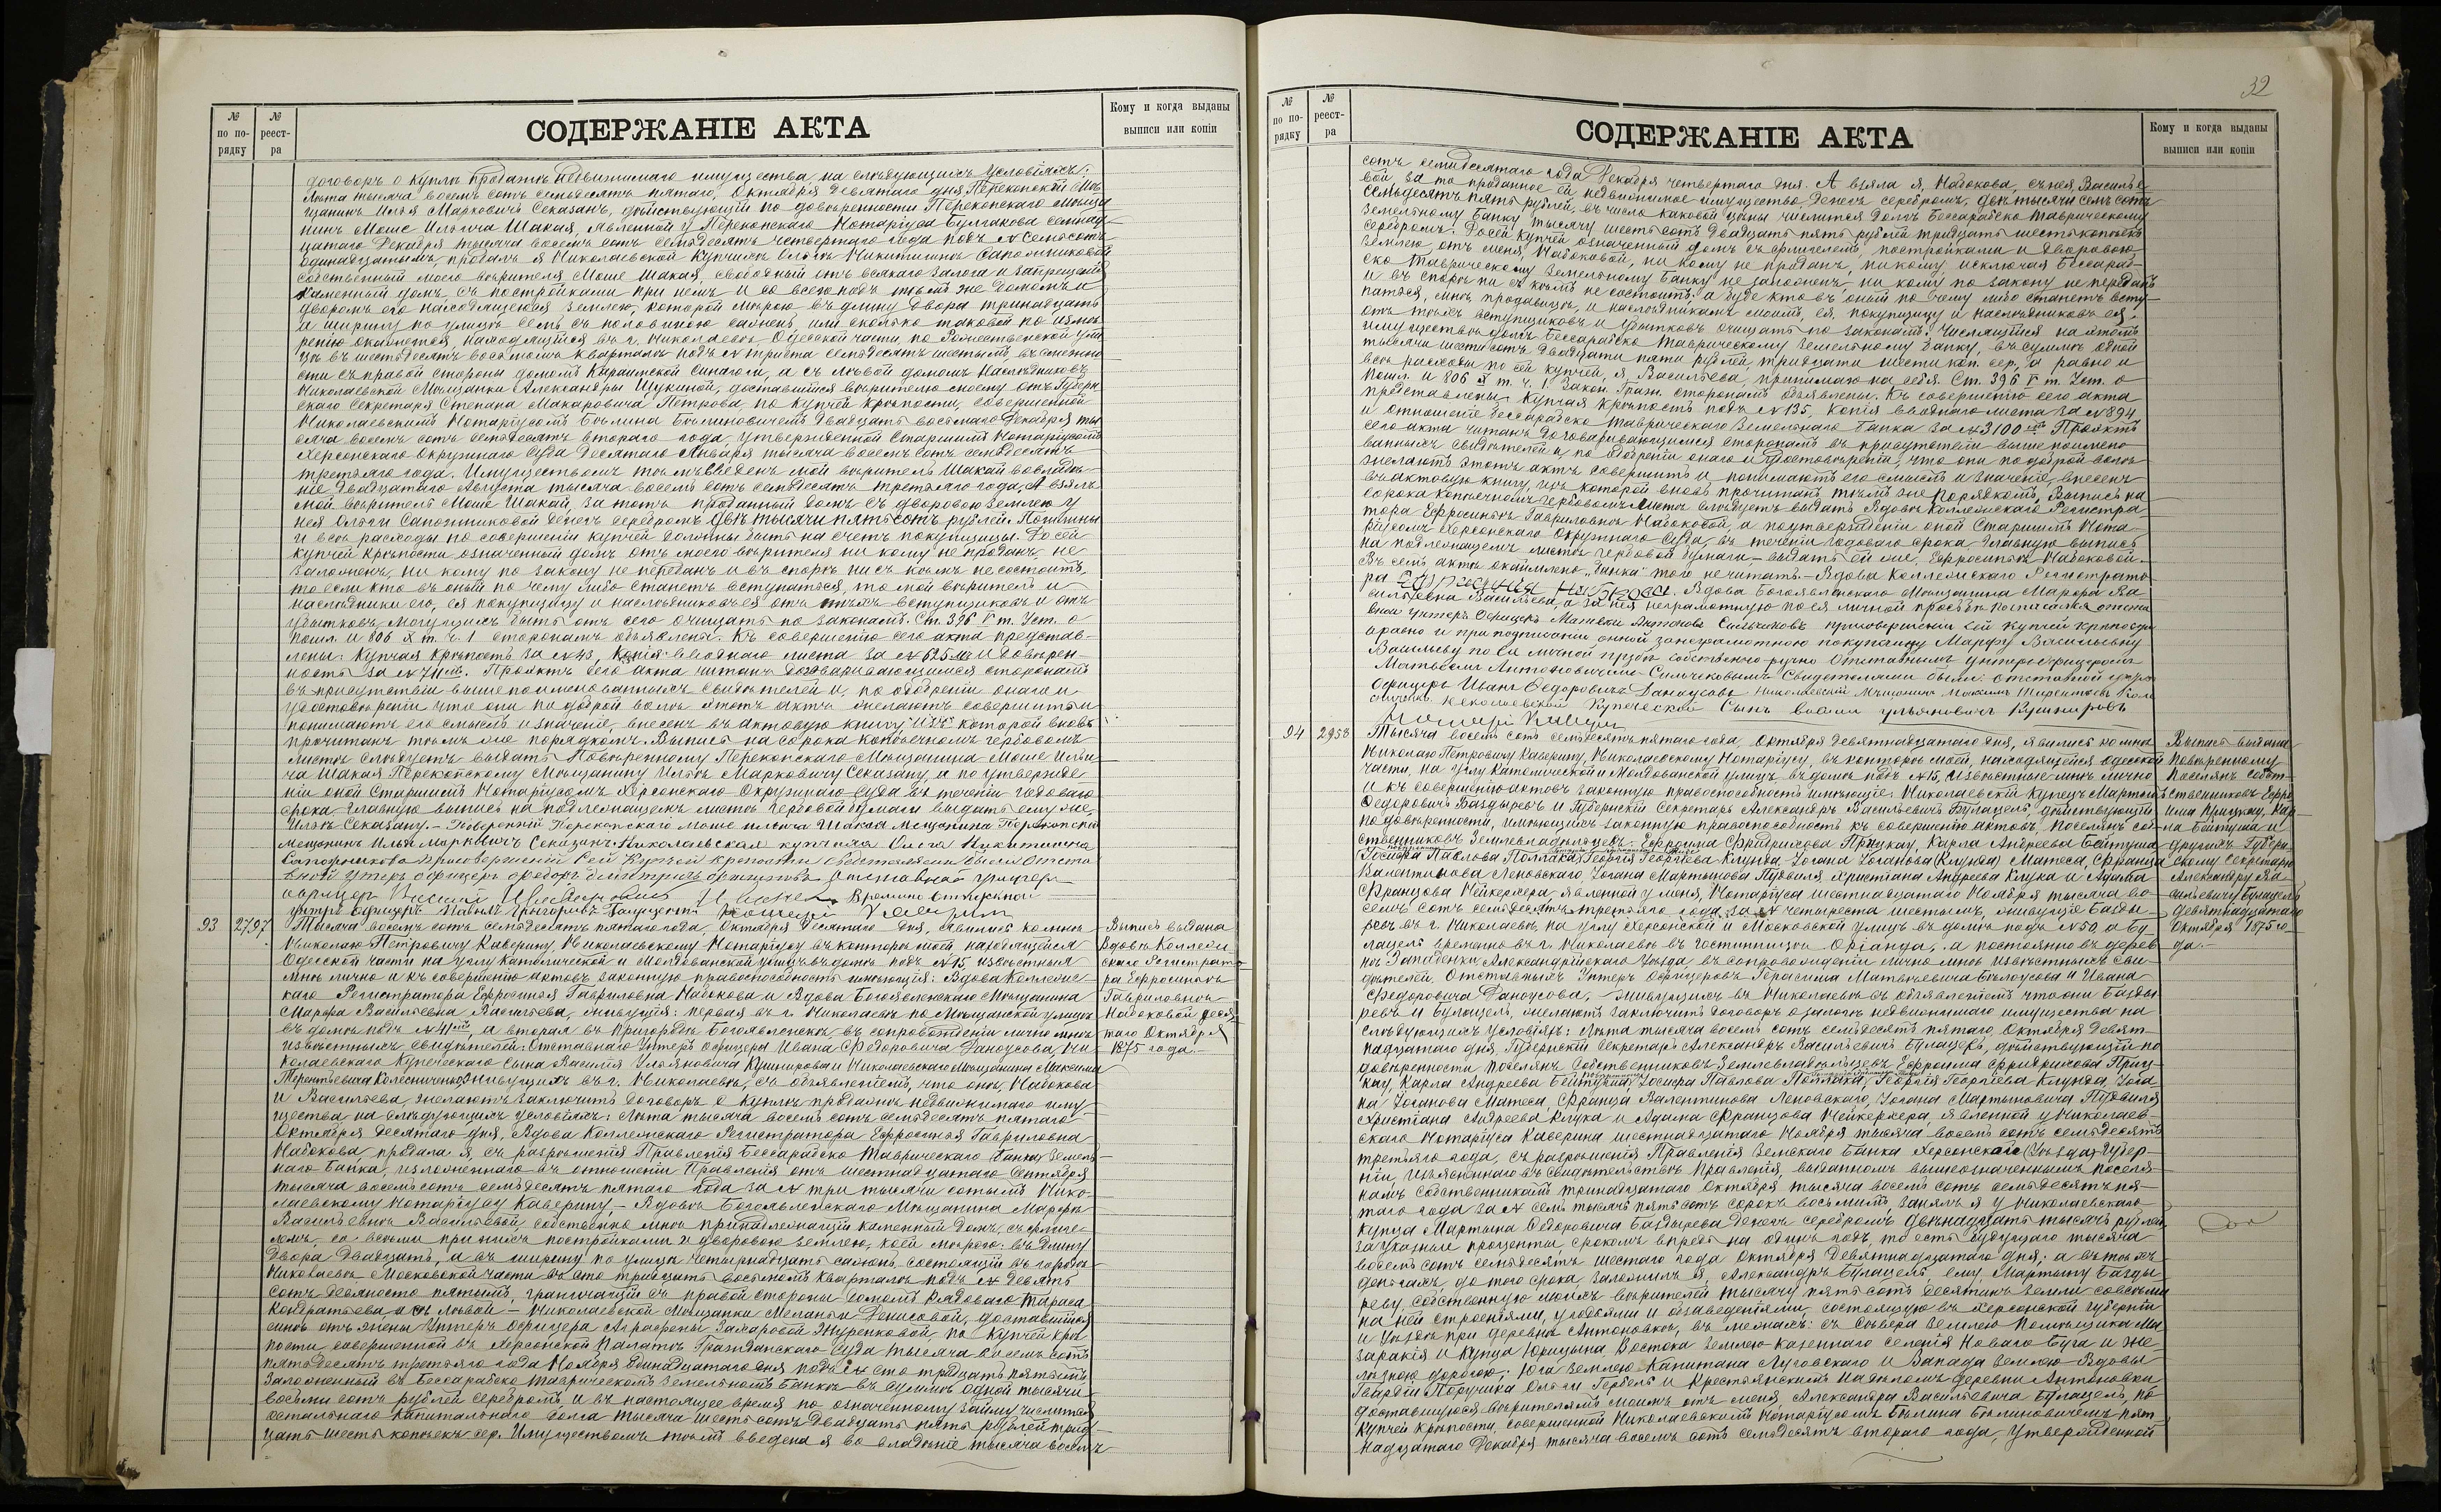 № по по-рядку
№ реест-ра
СОДЕРЖАНІЕ АКТА
Кому и когда выданы выписи или копіи
договоръ о куплѣ продажѣ недвижимаго имущества на слѣдующихъ условіяхъ:
Лѣта тысяча восемь сотъ семьдесятъ пятаго, Октября девятаго дня, Перекопскій Мѣ-
щанинъ Илья Марковичъ Секазанъ, дѣйствующій по довѣренности Перекопскаго Мѣща
нина Моше Ильича Шакая, явленной у Перекопскаго Нотаріуса Булгакова семнад-
цатаго Декабря тысяча восемь сотъ семьдесятъ четвертаго года подъ № семьсотъ
одинадцатымъ, продалъ я Николаевской Купчихѣ Ольгѣ Никитишнѣ Сапожниковой
собственный моего вѣрителя Моше Шакая, свободный отъ всякаго залога и запрещенія
каменный домъ, съ постройками при немъ и со всею подъ тѣмъ же домомъ и
дворомъ его находящеюся землею, которой мѣрою въ длину двора тринадцать
а ширину по улицѣ семь съ половиною саженъ, или сколько таковой по измѣ-
ренію окажется, находящійся въ г. Николаевѣ, Одесской части, по Рождественской ули
цѣ въ шестьдесятъ восьмомъ кварталѣ подъ № триста семьдесятъ шестымъ, въ смежно
сти съ правой стороны домомъ Караимской Синагоги, а съ лѣвой домомъ Наслѣдниковъ
Николаевской Мѣщанки Александры Щукиной, доставшійся вѣрителю моему отъ Губерн
скаго Секретаря Степана Макаровича Петрова, по купчей крѣпости, совершенной
Николаевскимъ Нотаріусомъ Бѣлина Бѣлиновичемъ двадцать восьмаго Декабря ты
сяча восемь сотъ семьдесятъ втораго года, утвержденной Старшимъ Нотаріусомъ
Херсонскаго Окружнаго Суда десятаго Января тысяча восемь сотъ семьдесятъ
третьяго года. Имуществомъ тѣмъ введенъ мой вѣритель Шакай во владѣ-
ніе двадцатаго Августа тысяча восемь сотъ семьдесятъ третьяго года. А взялъ
мой вѣритель Моше Шакай, за тотъ проданный домъ съ дворовою землею у
нея Ольги Сапожниковой денегъ серебромъ двѣ тысячи пятьсотъ рублей. Пошлины
и всѣ расходы по совершенію купчей должны быть на счетъ покупщицы. До сей
купчей крѣпости означенный домъ отъ моего вѣрителя ни кому не проданъ, не
заложенъ, ни кому по закону не переданъ и въ спорѣ ни съ кѣмъ не состоитъ,
то если кто въ оный по чему либо станетъ вступаться, то мой вѣритель и
наслѣдники его, ея покупщицу и наслѣдниковъ ея отъ тѣхъ вступщиковъ и отъ
убытковъ, могущихъ быть отъ сего очищать по законамъ. Ст. 396 V т. Уст. о
пошл. и 806 X т. ч. 1 сторонамъ объявлены. Къ совершенію сего акта представ-
лены: Купчая Крѣпость за № 43, копія вводнаго листа за № 525 и довѣрен-
ность за № 711. Проэктъ сего акта читанъ договаривающимся сторонамъ
въ присутствіи вышепоименованныхъ свидѣтелей и, по одобреніи онаго и
удостовѣреніи что они по доброй волѣ этотъ актъ желаютъ совершить и
понимаютъ его смыслъ и значеніе, внесенъ въ актовую книгу, изъ которой вновь
прочитанъ тѣмъ же порядкомъ. Выпись на сорока копѣечномъ гербовомъ
листѣ слѣдуетъ выдать Повѣренному Перекопскаго Мѣщанина Моше Ильи
ча Шакая Перекопскому Мѣщанину Ильѣ Марковичу Секазану, а по утвержде
ніи оной Старшимъ Нотаріусомъ Херсонскаго Окружнаго Суда въ теченіи годоваго
срока главную выпись на подлежащемъ листѣ гербовой бумаги выдать ему же,
Ильѣ Секазану. – Повѣренный Перекопскаго Моше Ильича Шакая Мещанина Перекопскій
мещанинъ Илья Марковичъ Секизанъ. Николаевская купчиха Ольга Никитишна
Сапожникова. При совершеніи сей купчей крепости свидетелями были Отста
вной Унтеръ офицеръ Федоръ отставной унтеръ
офицеръ Ивановъ. Временно отпускной
унтеръ офицеръ Павелъ Григорьевъ Нотаріусъ Каверинъ
93 2797
Тысяча восемь сотъ семьдесятъ пятаго года, Октября десятаго дня, явились ко мнѣ
Николаю Петровичу Каверину, Николаевскому Нотаріусу въ контору мою находящуюся
Одесской части на углу Католической и Молдаванской улицъ въ домѣ подъ № 15, извѣстныя
мнѣ лично и къ совершенію актовъ законную правоспособность имѣющія: Вдова Коллежс-
каго Регистратора Ефросинія Гавриловна Набокова и Вдова Богоявленскаго Мѣщанина
Марфа Васильевна Васильева, живущія: первая въ г. Николаевѣ по Мѣщанской улицѣ
въ домѣ подъ № 41, а вторая въ пригородѣ Богоявленскѣ, въ сопровожденіи лично мнѣ
извѣстныхъ свидѣтелей: Отставнаго Унтеръ Офицера Ивана Федоровича Даноусова, Ни
колаевскаго Купеческаго Сына Василія Ульяновича Кушнирова и Николаевскаго Мѣщанина Максима
Терентьевича Колесниченко, живущихъ въ г. Николаевѣ, съ объявленіемъ, что они, Набокова
и Васильева, желаютъ заключить договоръ о куплѣ продажѣ недвижимаго иму-
щества на слѣдующихъ условіяхъ: Лѣта тысяча восемь сотъ семьдесятъ пятаго
Октября десятаго дня, Вдова Коллежскаго Регистратора Ефросинія Гавриловна
Набокова, продала я, съ разрѣшенія Правленія Бессарабско Таврическаго Банка Земель
наго Банка, изложеннаго въ отношеніи Правленія отъ шестнадцатаго Сентября
тысяча восемь сотъ семьдесятъ пятаго года за № три тысячи сотымъ Нико-
лаевскому Нотаріусу Каверину, – Вдовѣ Богоявленскаго Мѣщанина Марфѣ
Васильевнѣ Васильевой, собственно мнѣ принадлежащій каменный домъ, съ флиге-
лемъ, со всѣми при нихъ постройками и дворовою землею, коей мѣрою: въ длину
двора двадцать, а въ ширину по улицѣ четырнадцать саженъ, состоящій въ городѣ
Николаевѣ Московской части въ сто тридцать восьмомъ кварталѣ подъ № девять
сотъ девяносто пятымъ, граничащій съ правой стороны домомъ Рядоваго Тараса
Кондратьева, а съ лѣвой – Николаевской Мѣщанки Меланьи Денисовой, доставшійся
мнѣ отъ жены Унтеръ Офицера Аграфены Захаровой Журенковой, по купчей крѣ
пости совершенной въ Херсонской Палатѣ Гражданскаго Суда тысяча восемь сотъ
пятьдесятъ третьяго года Ноября одинадцатаго дня подъ № сто тридцать пятымъ
заложенный въ Бессарабско Таврическомъ Земельномъ Банкѣ въ суммѣ одной тысячи
восьми сотъ рублей серебромъ, и въ настоящее время по означенному займу числится
остальнаго капитальнаго долга тысяча шесть сотъ двадцать пять рублей трид-
цать шесть копѣекъ сер. Имуществомъ тѣмъ введена я во владѣніе тысяча восемь
Выпись выдана
Вдовѣ Коллежс
скаго Регистрато
ра Ефросиніѣ
Гавриловнѣ
Набоковой деся
таго Октября
1875 года.–
32
№ по по-рядку
№ реест-ра
СОДЕРЖАНІЕ АКТА
Кому и когда выданы выписи или копіи
сотъ семидесятаго года Декабря четвертаго дня. А взяла я, Набокова, съ нея Василье-
вой за то проданное ей недвижимое имущество денегъ серебромъ двѣ тысячи семь сотъ
семьдесятъ пять рублей, въ число каковой цѣны числится долгъ Бессарабско Таврическому
Земельному Банку тысячу шесть сотъ двадцать пять рублей тридцать шесть копѣекъ
серебромъ. До сей купчей означенный домъ съ флигелемъ, постройками и дворовою
землею отъ меня, Набоковой, ни кому не проданъ, никому, исключая Бессараб-
ско Таврическому Земельному Банку не заложенъ, ни кому по закону не переданъ
и въ спорѣ ни съ кѣмъ не состоитъ; а буде кто въ оный по чему либо станетъ всту-
паться, мнѣ продавицѣ, и наслѣдникамъ моимъ, ея, покупщицу и наслѣдниковъ ея,
отъ тѣхъ вступщиковъ и убытковъ очищать по законамъ. Числящійся на этомъ
имуществѣ долгъ Бессарабско Таврическому Земельному Банку, въ суммѣ одной
тысячи шести сотъ двадцати пяти рублей, тридцати шести коп. сер., а равно и
всѣ расходы по сей купчей, я, Васильева, принимаю на себя. Ст. 396 V т. Уст. о
Пошл. и 806 X т. ч. 1 Закон. Гражд. сторонамъ объявлены. Къ совершенію сего акта
представлены: Купчая Крѣпость подъ № 135, копія вводнаго листа за № 894
и отношеніе Бессарабско Таврическаго Земельнаго Банка за № 3100. Проэктъ
сего акта читанъ договаривающимся сторонамъ въ присутствіи выше поимено
ванныхъ свидѣтелей и, по одобреніи онаго и удостовѣреніи, что они по доброй волѣ
желаютъ этотъ актъ совершить и понимаютъ его смыслъ и значеніе, внесенъ
въ актовую книгу, изъ которой вновь прочитанъ тѣмъ же порядкомъ. Выпись на
сорока копѣечномъ гербовомъ листѣ слѣдуетъ выдать Вдовѣ Коллежскаго Регистра
тора Ефросиніѣ Гавриловнѣ Набоковой, а по утвержденіи оной Старшимъ Нота-
ріусомъ Херсонскаго Окружнаго Суда, въ теченіи годоваго срока главную выпись
на подлежащемъ листѣ гербовой бумаги – выдать ей же, Ефросиніѣ Набоковой.
Въ семъ актѣ окаймлено „Банка" того не читать. – Вдова Коллежскаго Регистрато
ра Ефросинья Набокова. Вдова Богоявленскаго Мѣщанина Марфа Ва
сильевна Васильева, а за нея неграмотную по ея личной просьбѣ росписался отста
вной унтеръ Офицеръ Матвей Антоновъ Сильчиковъ при совершеніи сей купчей крѣпости
а равно и при подписаніи оной за неграмотною покупщицу Марфу Васильевну
Васильеву по ея личной прозбѣ собственно ручно Отставнымъ унтеръ офицеромъ
Матвѣемъ Антоновичемъ Сильчековымъ Свидетелями были: отставной унтеръ
Офицеръ Иванъ Федоровичъ Даноусовъ Николаевскій Мѣщанинъ Максимъ Тирентьевъ Коле
сниченко. Николаевской Купеческой Сынъ Василий ульяновичъ Кушнировъ
Нотаріусъ Каверинъ
94 2958
Тысяча восемь сотъ семьдесятъ пятаго года, Октября девятнадцатаго дня, явились ко мнѣ
Николаю Петровичу Каверину, Николаевскому Нотаріусу, въ контору мою, находящуюся Одесской
части, на углу Католической и Молдованской улицъ въ домѣ подъ № 15, извѣстные мнѣ лично
и къ совершенію актовъ законную правоспособность имѣющіе: Николаевскій Купецъ Мартынъ
Федоровичъ Баздыревъ и Губернскій Секретарь Александръ Васильевичъ Булацель, дѣйствующій
по довѣренности, имѣющихъ законную правоспособность къ совершенію актовъ, поселянъ соб-
ственниковъ Землевладѣльцевъ: Ефроима Фридрихова Прицкау, Карла Андреева Бейтуша
Іосифа Павлова Поллака, Георгія Георгіева Клунда, Іогана Іоганова (Клунда) Матеса, Франца
Валентинова Леновскаго, Іогана Мартынова Пудвиля, Христіана Андреева Клука и Адама
Францова Нейкермера, явленной у меня, Нотаріуса шестнадцатаго Ноября тысяча во-
семь сотъ семьдесятъ третьяго года, за № четыреста шестымъ, живущіе Базды-
ревъ въ г. Николаевѣ, на углу Херсонской и Московской улицъ въ домѣ подъ № 50, а Бу-
лацель временно въ г. Николаевѣ въ гостинницѣ Оріанда, а постоянно въ дерев-
нѣ Западенки, Александрійскаго Уѣзда, въ сопровожденіи лично мнѣ извѣстныхъ сви
дѣтелей, Отставныхъ Унтеръ Офицеровъ Герасима Матвѣевича Бѣлоусова и Ивана
Федоровича Даноусова, живущихъ въ Николаевѣ съ объявленіемъ что они Базды-
ревъ и Булацель, желаютъ заключить договоръ о залогѣ недвижимаго имущества на
слѣдующихъ условіяхъ: Лѣта тысяча восемь сотъ семьдесятъ пятаго, Октября девят-
надцатаго дня, Губернскій Секретарь Александръ Васильевичъ Булацель, дѣйствующій по
довѣренности поселянъ Собственниковъ Землевладѣльцевъ Ефроима Фридрихова Приц-
кау, Карла Андреева Бейтуша, Іосифа Павлова Поллака, Георгія Георгіева Клунда, Іога
на Іоганова Матеса, Франца Валентинова Леновскаго, Іогана Мартыновича Пудвиля
Христіана Андреева Клука и Адама Францова Нейкермера, явленной у Николаев-
скаго Нотаріуса Каверина шестнадцатаго Ноября тысяча восемь сотъ семьдесятъ
третьяго года, съ разрѣшенія Правленія Земскаго Банка Херсонской (Уѣзда) Губер-
ніи, изъясненнаго въ свидѣтельствѣ Правленія, выданномъ вышеозначеннымъ поселя-
намъ Собственникамъ тринадцатаго Октября, тысяча восемь сотъ семьдесятъ пя-
таго года за № семь тысячъ пятьсотъ сорокъ восьмымъ, занялъ я у Николаевскаго
купца Мартына Федоровича Баздырева денегъ серебромъ двѣнадцать тысячъ рублей
за указные проценты, срокомъ впредь на одинъ годъ, то есть будущаго тысяча
восемь сотъ семьдесятъ шестаго года Октября девятнадцатаго дня; а въ тѣхъ
деньгахъ, до того срока, заложилъ я, Александръ Булацель, ему, Мартыну Базды-
реву, собственную моихъ вѣрителей тысячу пять сотъ десятинъ земли со всѣми
на ней строеніями, угодьями и обзаведеніями, состоящую въ Херсонской губерніи
и Уѣздѣ при деревнѣ Антоновкѣ, въ межахъ: съ Сѣвера землею Помѣщика Ма
заракія и Купца Юрицына, Востока землею казеннаго селенія Новаго Буга и же-
лѣзною дорогою; Юга землею Капитана Луговскаго и Запада землею Вдовы
Гвардіи Поручика Ольги Гербель и Крестьянскимъ надѣломъ деревни Антоновки
доставшуюся вѣрителямъ моимъ отъ меня, Александра Васильевича Булацель, по
купчей крѣпости, совершенной Николаевскимъ Нотаріусомъ Бѣлина Бѣлиновичемъ пят
надцатаго Декабря тысяча восемь сотъ семьдесятъ втораго года, утвержденной
Выпись выдана
Повѣренному
Поселянъ собст-
ственниковъ Ефро
има Прицкау, Кар-
ла Бейтуша и
другихъ Губерн-
скому Секретарю
Александру Ва-
сильевичу Булацель
девятнадцатаго
Октября 1875 го-
да.–